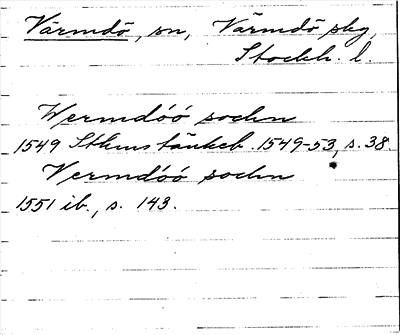 Värmdö, sn, Värmdö skg,
Stockh. l.
Wermdóó sochn
1549 Sthms tänkeb. 1549-53, s. 38.
Vermdóó sochn
1551 ib., s. 143.